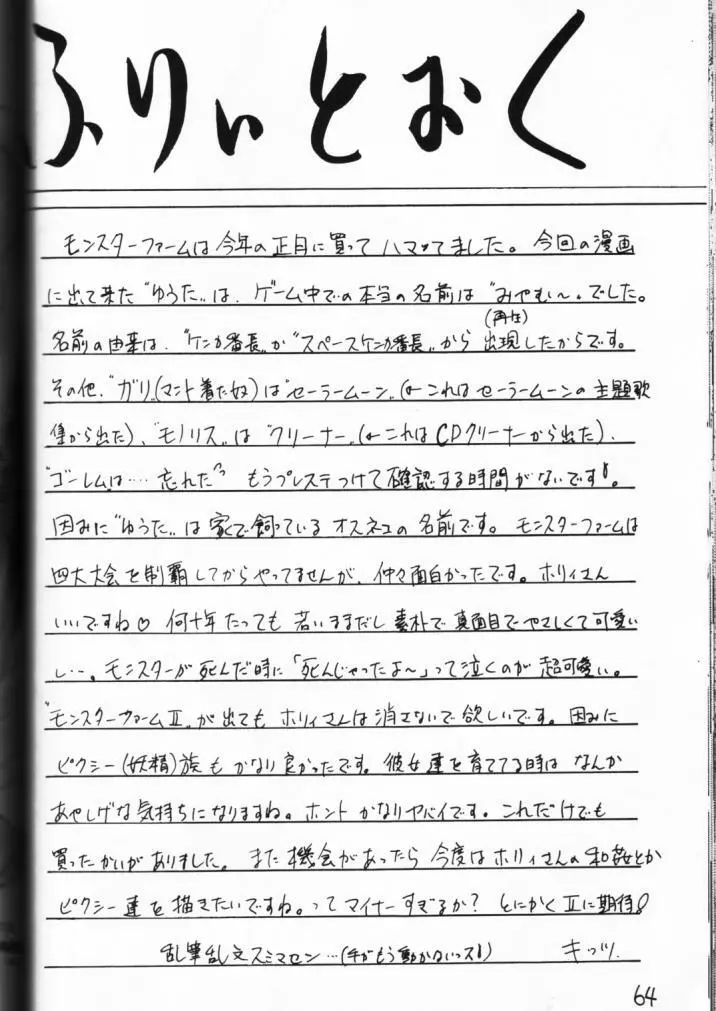 ふりぃとおく
モンスターファームは今年の正月に買ってハマッてました。今回の漫画
に出て来た"ゆうた"は、ゲーム中での本当の名前は"みやむ〜"でした。
(再生)
名前の由来は、"ケンカ番長"が"スペースケンカ番長"から出現したからです。
その他、"ガリ"(マント着た奴)は"セーラームーン"(←これはセーラームーンの主題歌
集から出た)、"モノリス"は"クリーナー"(←これはCDクリーナーから出た)、
"ゴーレムは…忘れた" もうプレステつけて確認する時間がないです!。
因みに"ゆうた"は家で飼っているオスネコの名前です。モンスターファームは
四大大会を制覇してからやってませんが、仲々面白かったです。ホリィさん
いいですね♡ 何十年たっても若いままだし素朴で真面目でやさしくて可愛い
し…。モンスターが死んだ時に「死んじゃったよ〜」って泣くのが超可愛い。
"モンスターファームⅡ"が出てもホリィさんは消さないで欲しいです。因みに
ピクシー(妖精)族もかなり良かったです。彼女達を育ててる時はなんか
あやしげな気持ちになりますね。ホントかなりヤバイです。これだけでも
買ったかいがありました。また機会があったら今度はホリィさんの和姦とか
ピクシー達を描きたいですね。ってマイナーすぎるか?とにかくⅡに期待!
乱筆乱文スミマセン…(手がもう動かないっス!) キッツ.
64